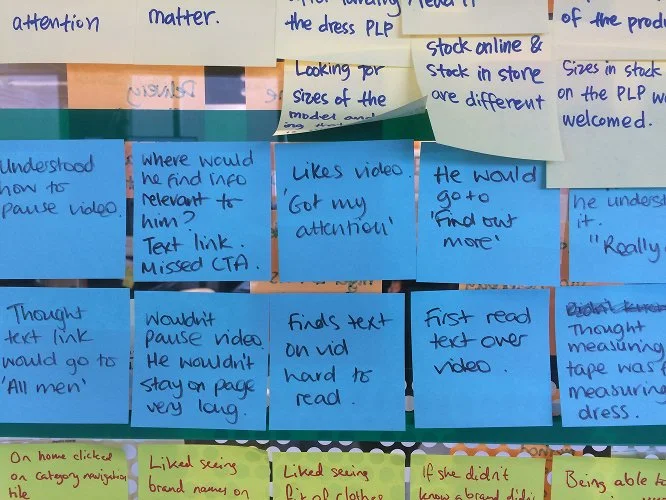 attention
matter.
the dress PLP
Looking for
sizes of the
model and
stock online &
stock in store
are different
of the
Sizes in stock
on the PLP
welcomed.
Delivery
Understood
how to
pause video.
where would
he find info
relevant to
him?
Text link.
Missed CTA.
Likes video.
'Got my
attention'
He would
go to
'Find out
more'
he
it.
"Really
Thought
text link
would go to
'All men'
Wouldn't
pause video.
He wouldn't
stay on page
very long.
Finds text
on vid
hard to
read.
First read
text over
video.
Thought
measuring
tape was
measuring
dress.
On home clicked
on category navigation
tile
Liked seeing
brand names on
Liked seeing
fit of clothes
If she didn't
know a brand
Being able